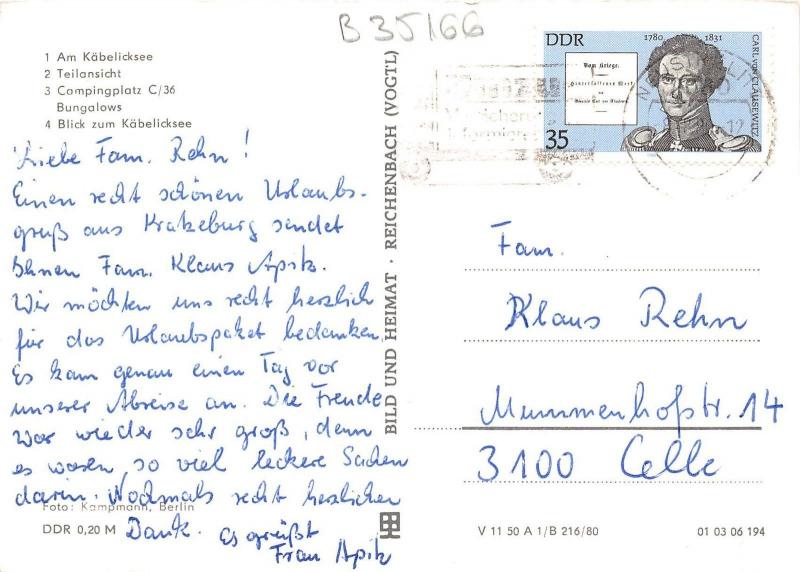 B 35166
1 Am Käbelicksee
2 Teilansicht
3 Campingplatz C/36
Bungalows
4 Blick zum Käbelicksee
Liebe Fam. Rehn!
Einen recht schönen Urlaubs-
gruß aus Kratzeburg sendet
Ihnen Fam. Klaus Apitz.
Wir möchten uns recht herzlich
für das Urlaubspaket bedanken.
Es kam genau einen Tag vor
unserer Abreise an. Die Freude
war wieder sehr groß, denn
es waren so viel leckere Sachen
darin. Nochmals recht herzlichen
Dank. Es grüßt
Frau Apitz
Foto: Kampmann, Berlin
DDR 0,20 M
BILD UND HEIMAT · REICHENBACH (VOGTL)
DDR
1780
1831
Vom Kriege.
Hinterlassenes Werk
des
Generals Carl von Clausewitz
35
CARL VON CLAUSEWITZ
Fam.
Klaus Rehn
Mummenhofstr. 14
3100 Celle
V 11 50 A 1/B 216/80
01 03 06 194